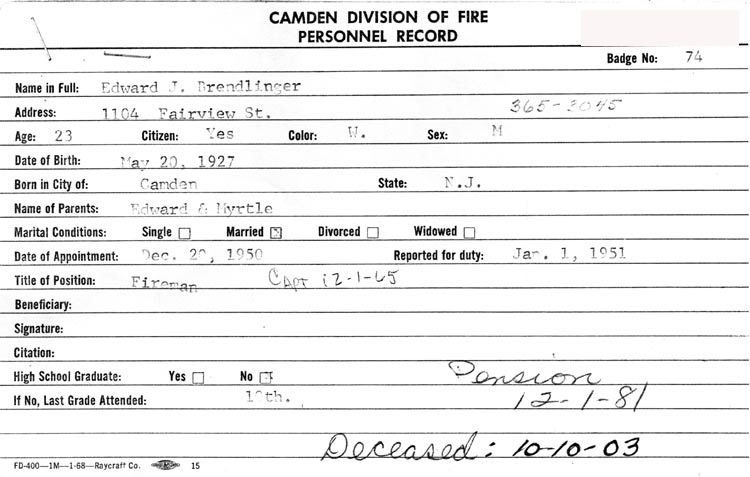 CAMDEN DIVISION OF FIRE
PERSONNEL RECORD
Badge No: 74
Name in Full: Edward J. Brendlinger
Address: 1104 Fairview St. 365-3045
Age: 23 Citizen: Yes Color: W. Sex: M
Date of Birth: May 20, 1927
Born in City of: Camden State: N.J.
Name of Parents: Edward & Myrtle
Marital Conditions: Single Married Divorced Widowed
Date of Appointment: Dec. 1950 Reported for duty: Jan. 1, 1951
Title of Position: Fireman Capt 12-1-65
Beneficiary:
Signature:
Citation:
High School Graduate: Yes No Pension
If No, Last Grade Attended: 12-1-81
Deceased: 10-10-03
FD-400—1M—1-68—Raycraft Co. 15